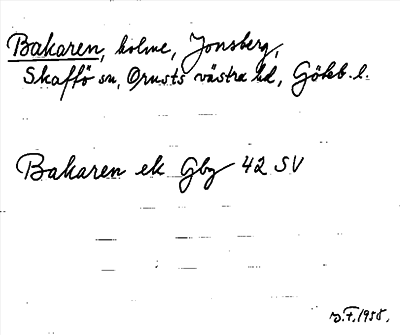 Bakaren, holme, Jonsberg,
Skaftö sn, Orusts västra hd, Götebl.
Bakaren ek Gbg 42 SV
D.F. 1958.